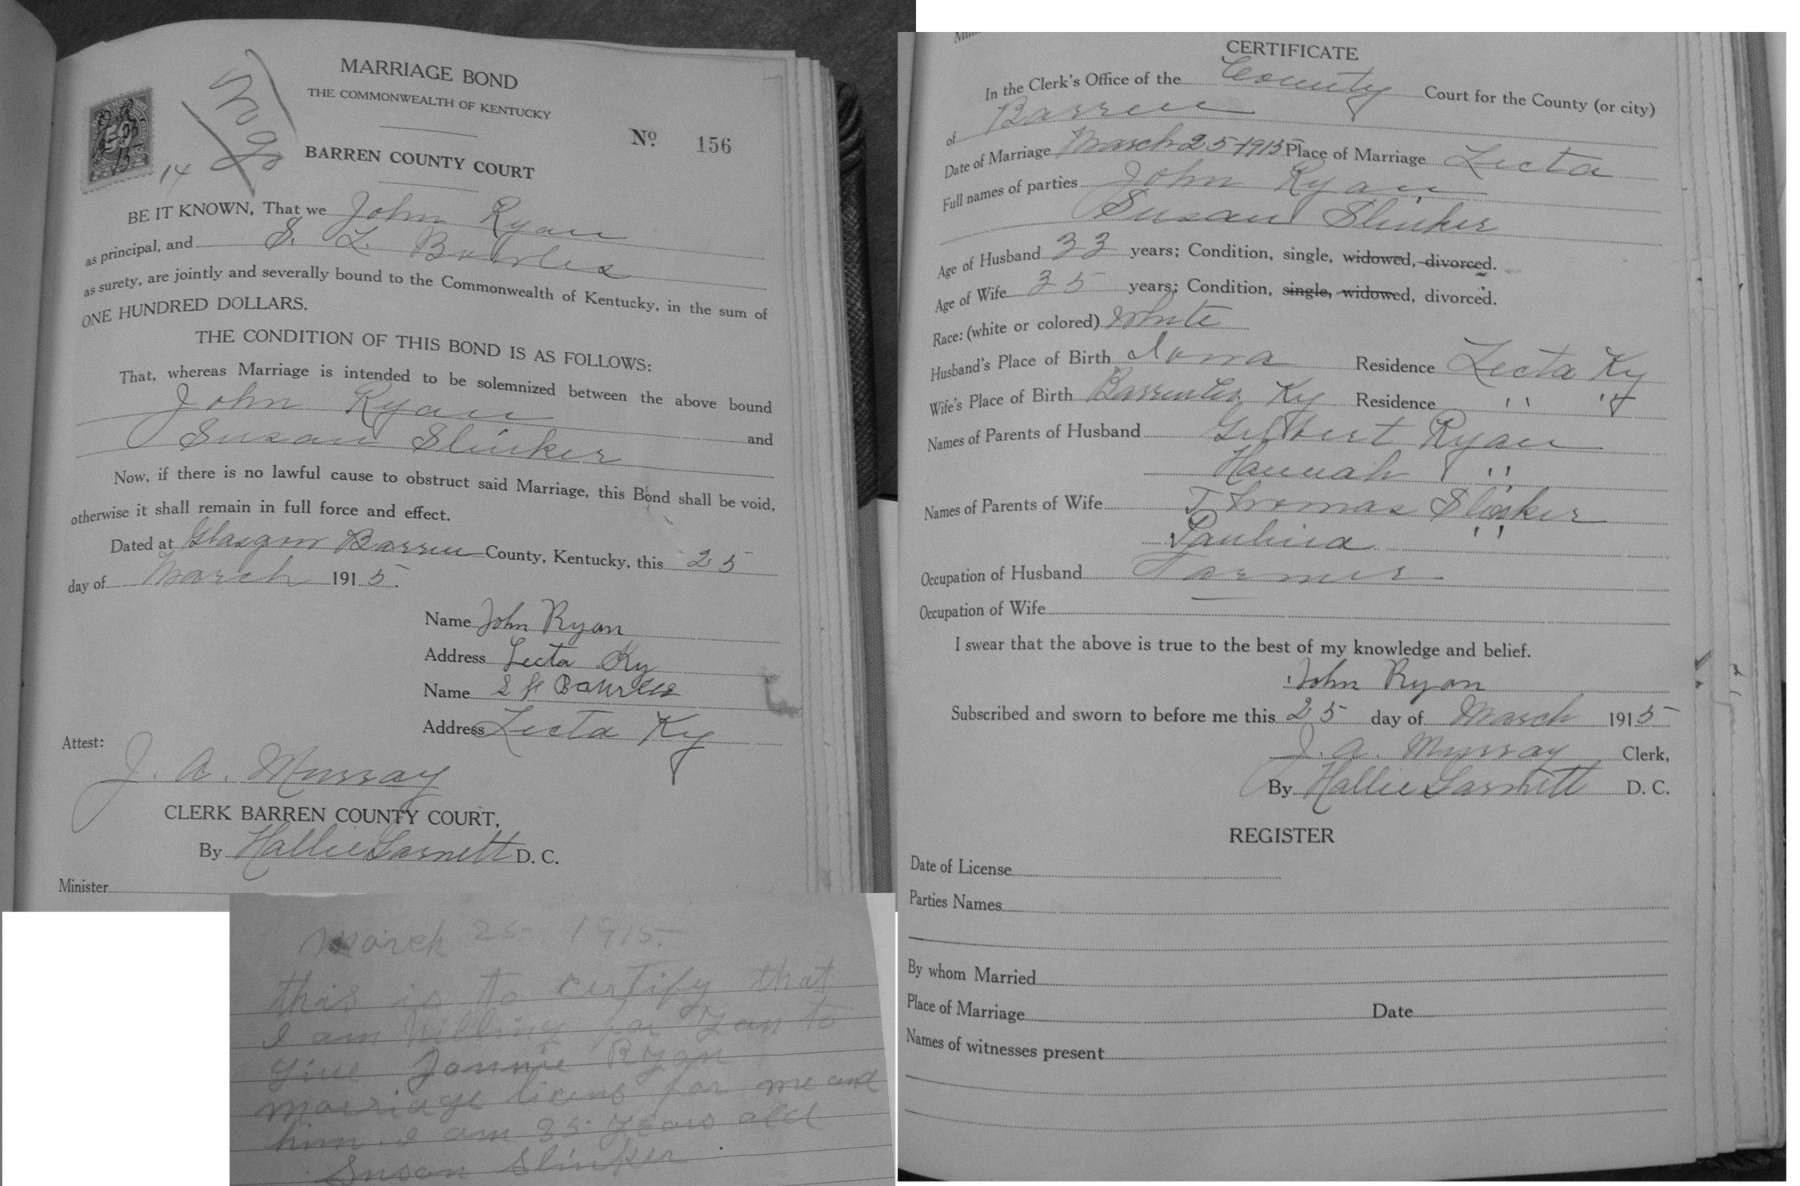 MARRIAGE BOND
THE COMMONWEALTH OF KENTUCKY
No. 156
BARREN COUNTY COURT
14
BE IT KNOWN, That we John Ryan
as principal, and S. L. Bowles
as surety, are jointly and severally bound to the Commonwealth of Kentucky, in the sum of
ONE HUNDRED DOLLARS.
THE CONDITION OF THIS BOND IS AS FOLLOWS:
That, whereas Marriage is intended to be solemnized between the above bound
John Ryan
and
Susan Slinker
Now, if there is no lawful cause to obstruct said Marriage, this Bond shall be void,
otherwise it shall remain in full force and effect.
Dated at Glasgow Barren County, Kentucky, this 25
day of March 1915.
Name John Ryan
Address Lecta Ky
Name S L Bowles
Address Lecta Ky
Attest:
J. A. Murray
CLERK BARREN COUNTY COURT,
By Hallie Garnett D. C.
Minister
March 25 1915.
this is to certify that
I am Willing for you to
give Jonnie Ryan
marriage licens for me and
him I am 35 years old
Susan Slinker
CERTIFICATE
In the Clerk's Office of the County Court for the County (or city)
of Barren
Date of Marriage March 25-1915 Place of Marriage Lecta
Full names of parties John Ryan
Susan Slinker
Age of Husband 33 years; Condition, single, widowed, divorced.
Age of Wife 35 years; Condition, single, widowed, divorced.
Race: (white or colored) White
Husband's Place of Birth Iowa Residence Lecta Ky
Wife's Place of Birth Barren Co. Ky Residence " "
Names of Parents of Husband Gilbert Ryan
Hannah "
Names of Parents of Wife Thomas Slinker
Paulina "
Occupation of Husband Farmer
Occupation of Wife
I swear that the above is true to the best of my knowledge and belief.
John Ryan
Subscribed and sworn to before me this 25 day of March 1915
J. A. Murray Clerk,
By Hallie Garnett D. C.
REGISTER
Date of License
Parties Names
By whom Married
Place of Marriage Date
Names of witnesses present